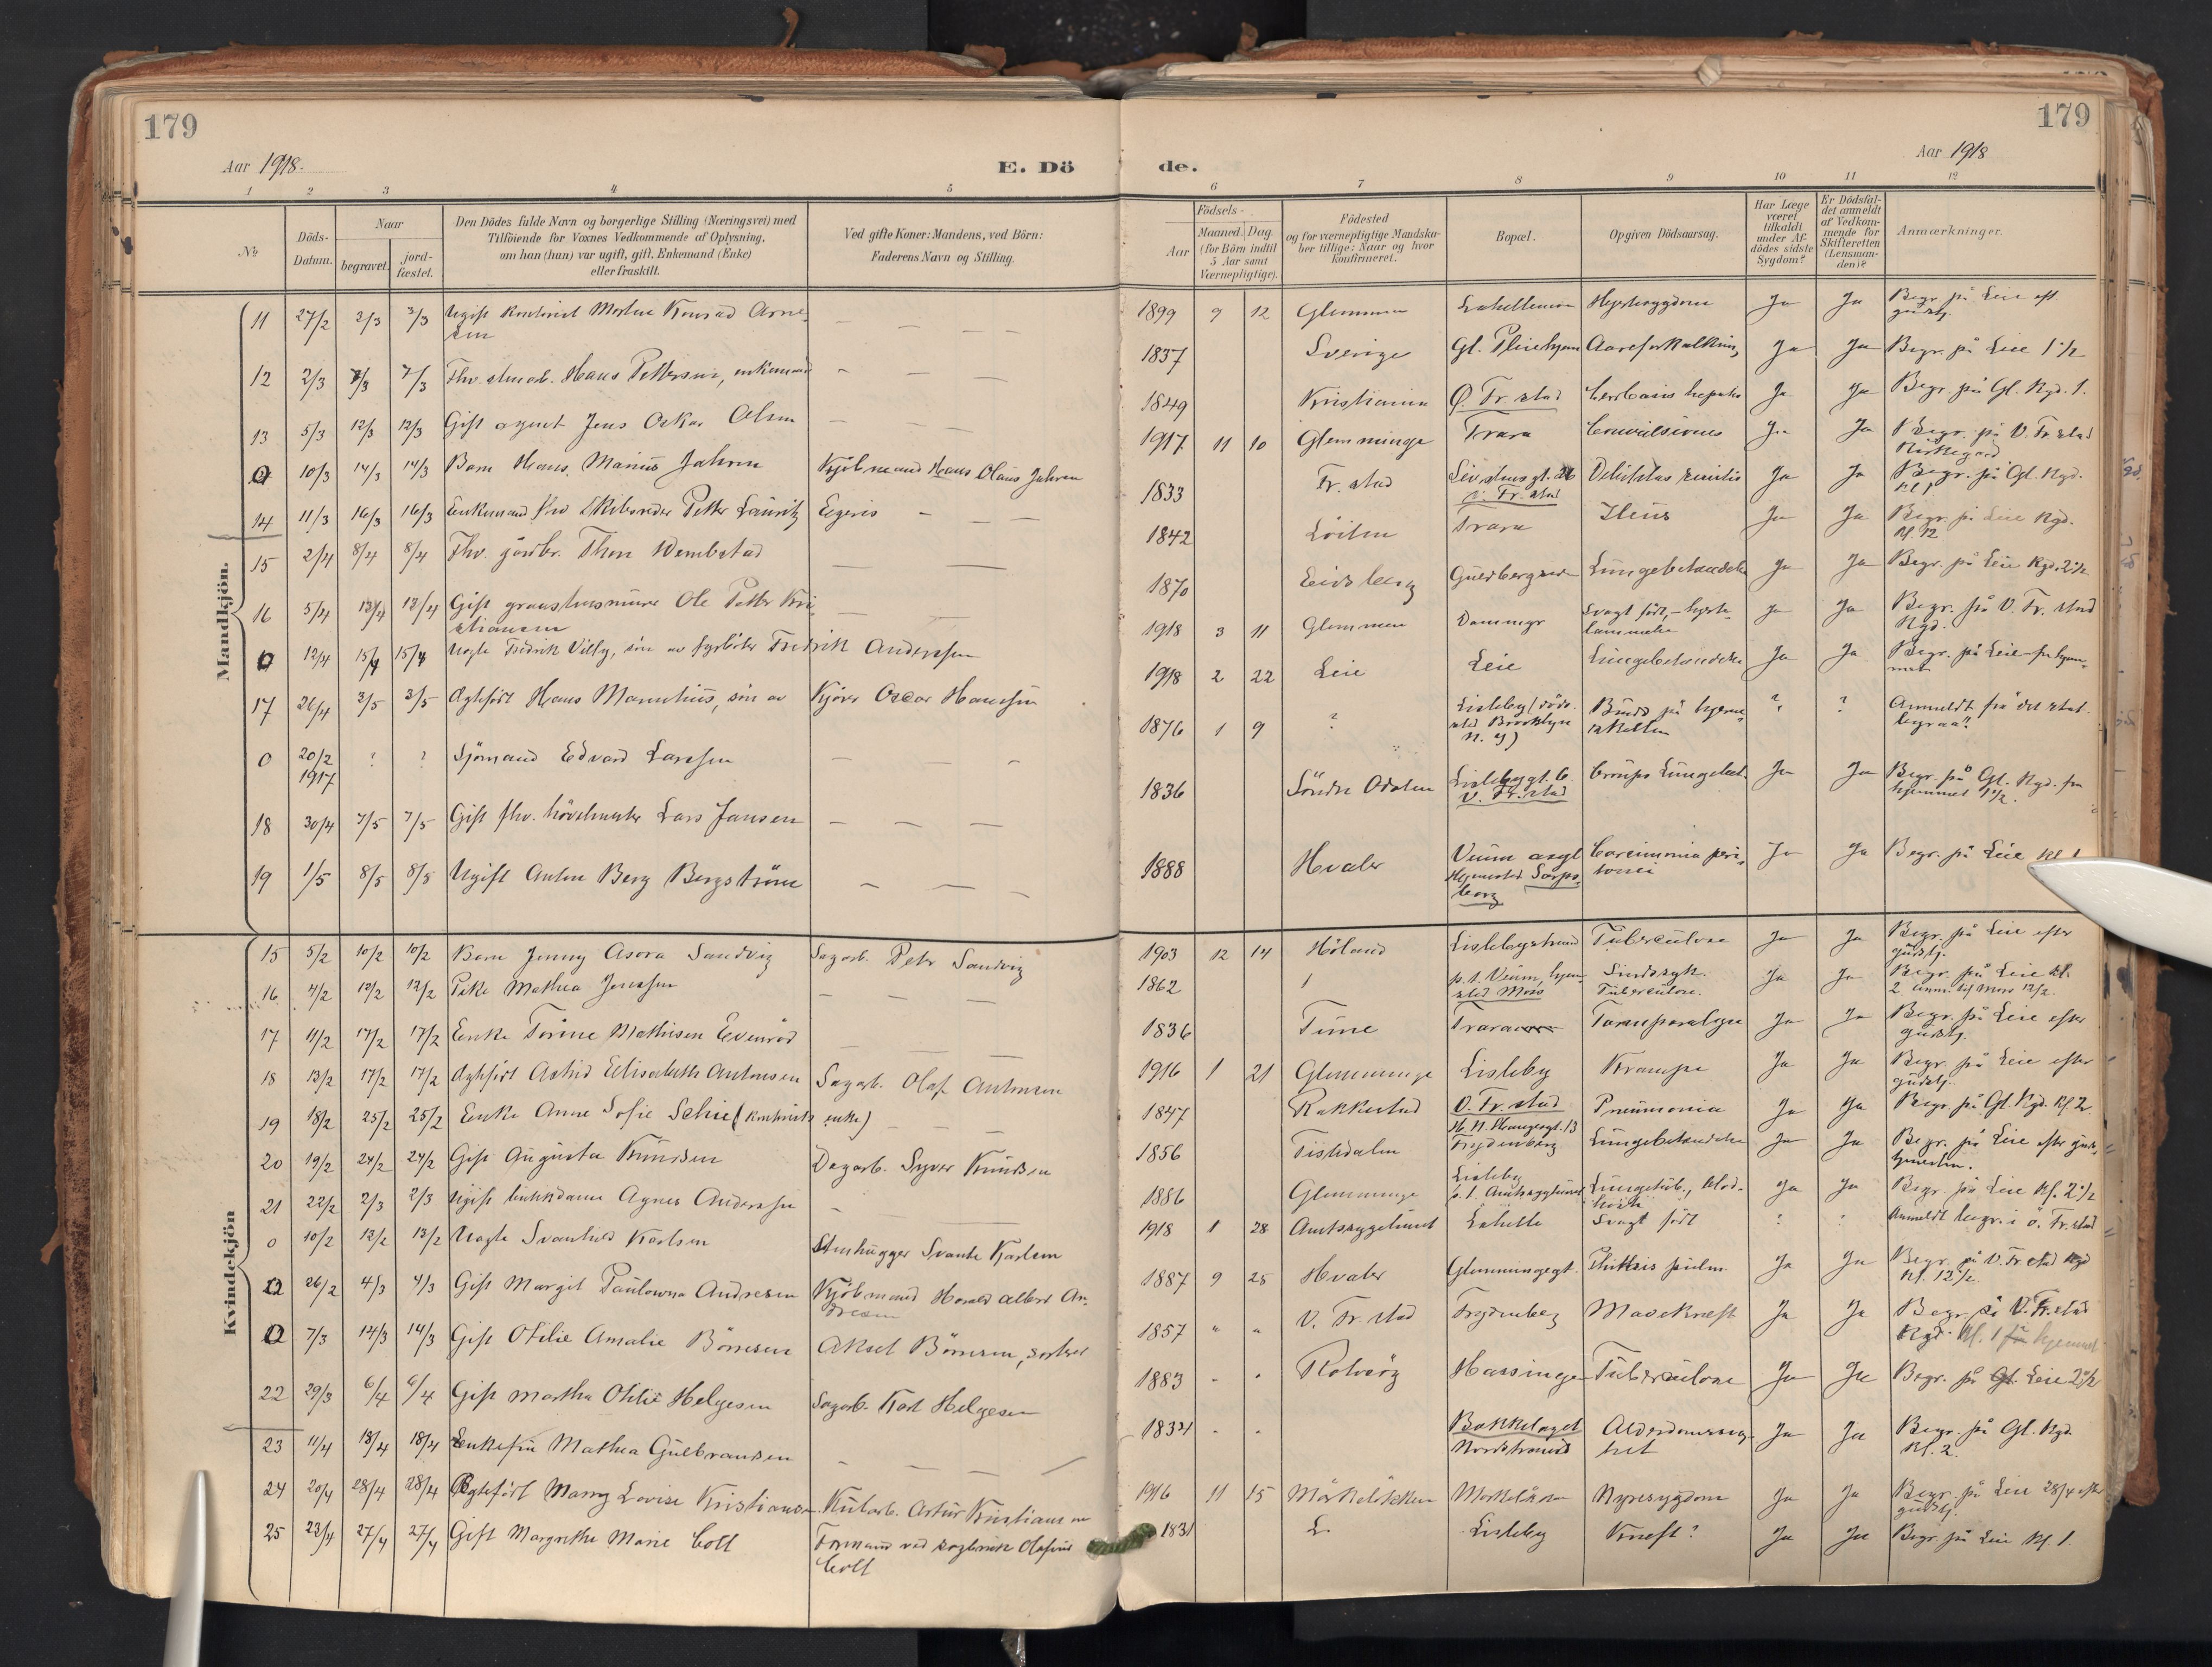 179
179
Aar 1918.
E. Dö
de.
Aar 1918
1 2 3 4 5 6 7 8 9 10 11 12
No
Döds-
Datum.
Naar
begravet.
jord-
fæstet.
Den Dödes fulde Navn og borgerlige Stilling (Næringsvei) med
Tilföiende for Voxnes Vedkommende af Oplysning,
om han (hun) var ugift, gift, Enkemand (Enke)
eller fraskilt.
Ved gifte Koner: Mandens, ved Börn:
Faderens Navn og Stilling.
Födsels-
Aar
Maaned. Dag.
(for Börn indtil
5 Aar samt
Værnepligtige).
Födested
og for værnepligtige Mandska-
ber tillige: Naar og hvor
konfirmeret.
Bopæl.
Opgiven Dödsaarsag.
Har Læge
været
tilkaldt
under Af-
dödes sidste
Sygdom?
Er Dödsfal-
det anmeldt
af Vedkom-
mende for
Skifteretten
(Lensman-
den)?
Anmærkninger.
Mandkjön.
11 27/2 2/3 3/3 Ugift Morten Konrad Arne-
sen
1899 9 12 Glemmen Hjertesygdom Ja Ja Begr. på Leie eft.
gudstj.
12 2/3 7/3 7/3 Fhv. Hans Pettersen, enkemand
1837 Sverige Gl. Pleiehjem Aareforkalkning Ja Ja Begr. på Leie 1 1/2
13 5/3 12/3 12/3 Gift agent Jens Oskar Olsen
1849 Kristiania Ø. Fr.stad hepatis Ja Ja Begr. på Gl. Kgd. 1.
0 10/3 14/3 14/3 Barn Hans Marius Jahren Kjöbmand Hans Olaus Jahren
1917 11 10 Glemminge Trara Convulsiones Ja Ja Begr. på V. Fr.stad
Kirkegård
14 11/3 16/3 16/3 Enkemand fhv. Petter Lauritz Eegeris
1833 Fr.stad 26
V. Fr.stad
Ja Ja Begr. på Gl. Kgd.
kl 1
15 2/4 8/4 8/4 Fhv. gårdbr. Thon Wembstad
1842 Löiten Trara Ileus Ja Ja Begr. på Leie Kgd.
kl. 12
16 5/4 13/4 13/4 Gift Ole Petter Kri-
stiansen
1870 Eidsberg Lungebetændelse Ja Ja Begr. på Leie Kgd. 2 1/2
0 12/4 15/4 15/4 Uægte Fredrik Villy, sön av fyrböter Fredrik Anderssen
1918 3 11 Glemmen Dammyr Svagt födt, - hjerte-
lammelse
Ja Ja Begr. på V. Fr.stad
Kgd.
17 26/4 3/5 3/5 Ægtefödt Hans Mauritius, sön av Kjörer Oscar Hanssen
1918 2 22 Leie Leie Lungebetændelse Ja Ja Begr. på Leie fr. hjem-
met
0 20/2
1917
? ? Sjömand Edvard Larssen
1876 1 9 ? Lisleby (döds-
sted Brooklyn
N. Y)
Brudd på hjerne-
skallen
? ? Anmeldt fra det stat.
byraa?
18 30/4 7/5 7/5 Gift fhv. hövelmester Lars Jansen
1836 Söndre Odalen Lislebygt. 6
V. Fr.stad
Croupös Lungebet. Ja Ja Begr. på Gl. Kgd. fra
hjemmet 1 1/2.
19 1/5 8/5 8/5 Ugift Anton Berg Bergström
1888 Hvaler Veum asyl
Hjemsted Sarps-
borg
peri-
tonei
Ja Ja Begr. på Leie kl
Kvindekjön
15 5/2 10/2 10/2 Barn Jenny Asora Sandvig Sagarb. Petr Sandvig
1903 12 14 Höland Lislebystrand Tuberculose Ja Ja Begr. på Leie efter
gudstj.
16 4/2 12/2 12/2 Pike Mathea Jenssen
1862 p. t. Veum, hjem-
sted Moss
Sindssyk.
Tuberculose.
Ja Ja Begr. på Leie kl.
2 anm. til Moss 12/2.
17 11/2 17/2 17/2 Enke Torine Mathisen Evenröd
1836 Tune Trara Tarmparalyse Ja Ja Begr. på Leie efter
gudstj.
18 13/2 17/2 17/2 Ægtefödt Astrid Elisabeth Antonsen Sagarb. Olaf Antonsen
1916 1 21 Glemminge Lisleby Krampe Ja Ja Begr. på Leie efter
gudstj.
19 18/2 25/2 25/2 Enke Anne Sofie Schie ( enke)
1847 Rakkestad V. Fr.stad
H. N. Haugesgt. 13
Pneumonia Ja Ja Begr. på Gl. Kgd. kl 2
20 19/2 24/2 24/2 Gift Augusta Knudsen Dagarb. Syver Knudsen
1856 Tistedalen Frydenberg Lungebetændelse Ja Ja Begr. på Leie efter guds-
tjenesten.
21 22/2 2/3 2/3 Ugift butikkdame Agnes Anderssen
1886 Glemminge Lisleby
p. t. Amtssygehuset
Lungetub., blod-
hoste
Ja Ja Begr. på Leie kl. 2 1/2
0 10/2 13/2 13/2 Uægte Svanhild Karlsen Stenhugger Svante Karlsen
1918 1 28 Amtssygehuset Svagt födt ? ? Anmeldt begr. i ö. Fr.stad
0 26/2 4/3 4/3 Gift Margit Paulowna Andresen Kjöbmand Harald Albert An-
dresen
1887 9 25 Hvaler Glemmingegt. Phthisis pulm. Ja Ja Begr. på V. Fr.stad Kgd
kl. 12 1/2
0 7/3 14/3 14/3 Gift Otilie Amalie Börresen Aksel Börresen,
1857 " " V. Fr.stad Frydenberg Mavekræft Ja Ja Begr. på V. Fr.stad
Kgd. kl. 1 fra hjemmet
22 29/3 6/4 6/4 Gift Martha Otilie Helgesen Sagarb. Karl Helgesen
1883 - - Rolvsöy Hassingen Tuberculose Ja Ja Begr. på Gl. Leie 2 1/2
23 11/4 18/4 18/4 Enkefru Mathea Gulbrandsen
1834 - - Bækkelaget
Nordstrand
Alderdomssvag-
het
Ja Ja Begr. på Gl. Kgd.
kl. 2
24 20/4 28/4 28/4 Ægtefödt Marry Lovise Kristiansen Artur Kristiansen
1916 11 15 Nyresygdom Ja Ja Begr. på Leie 28/4 efter
gudstj.
25 23/4 27/4 27/4 Gift Margrethe Marie Colt Formand ved Olafius
Colt
1831 L. Lisleby Kræft? Ja Ja Begr. på Leie kl. 1.